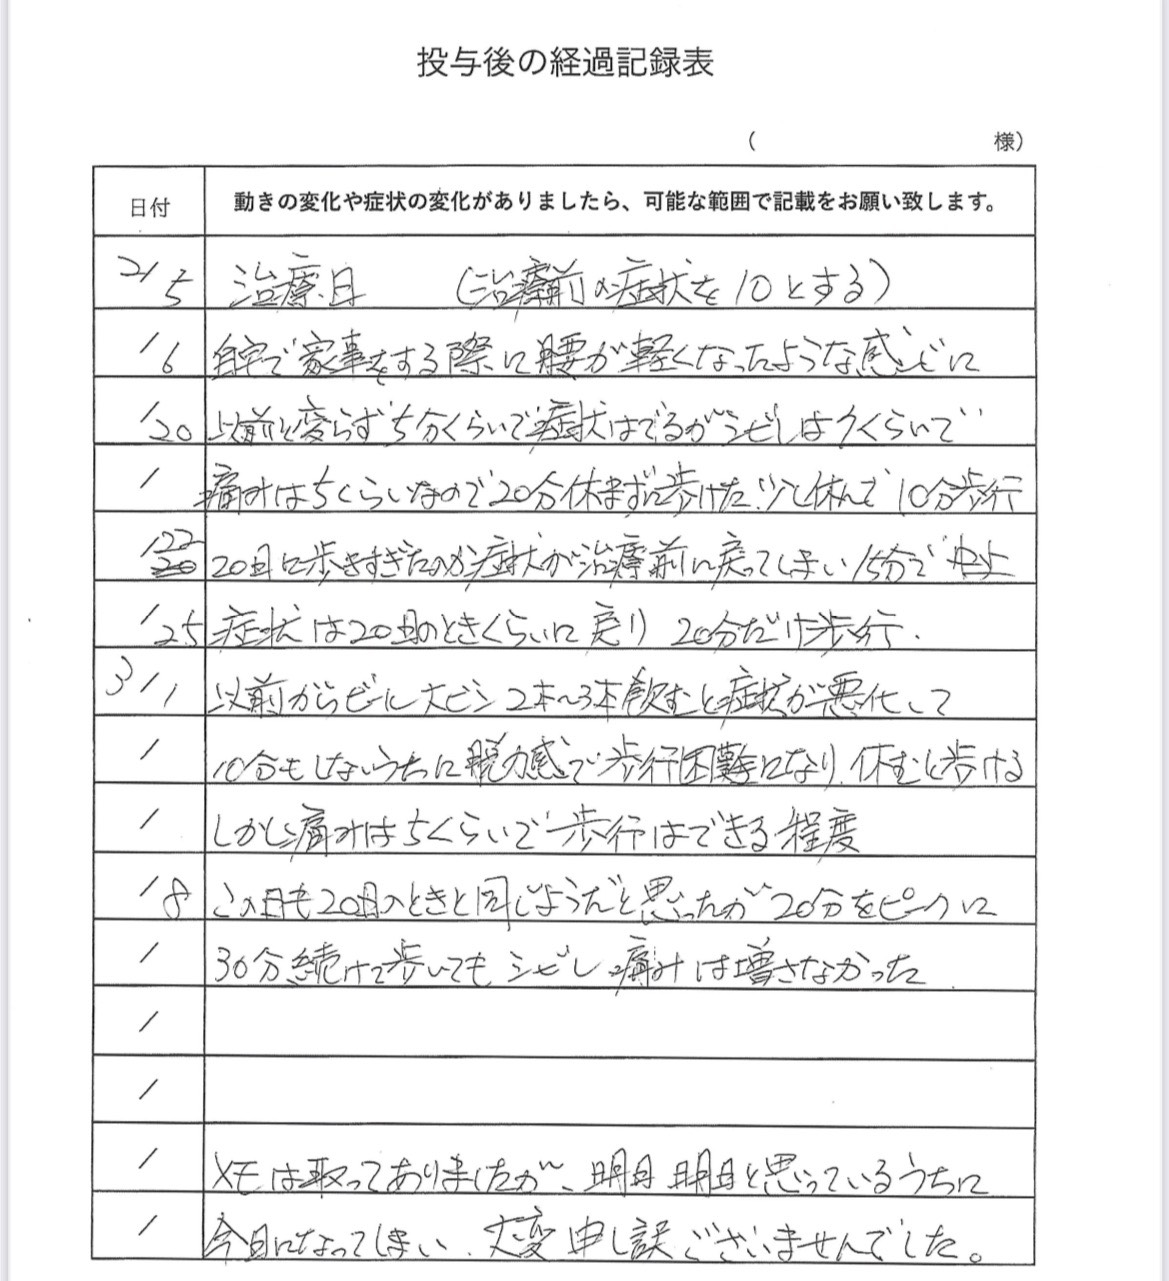 投与後の経過記録表
( 様)
日付 動きの変化や症状の変化がありましたら、可能な範囲で記載をお願い致します。
2/5 治療日 (治療前の症状を10とする)
/6 自宅で家事をする際に腰が軽くなったような感じに
/20 以前と変らず5分くらいで症状はでるがシビレは7くらいで
/ 痛みは5くらいなので20分休まずに歩けた.少し休んで10分歩行
/22 20 20日に歩きすぎたのか症状が治療前に戻ってしまい15分で中止
/25 症状は20日のときくらいに戻り 20分だけ歩行.
3/1 以前からビール大ビン2本〜3本飲むと症状が悪化して
/ 10分もしないうちに脱力感で歩行困難になり、休むと歩ける
/ しかし痛みは5くらいで歩行はできる程度
/8 この日も20日のときと同じようだと思ったが20分をピークに
/ 30分続けて歩いても、シビレ痛みは増さなかった.
/
/
/ メモは取ってありましたが、明日 明日と思っているうちに
/ 今日になってしまい、大変申し訳ございませんでした。